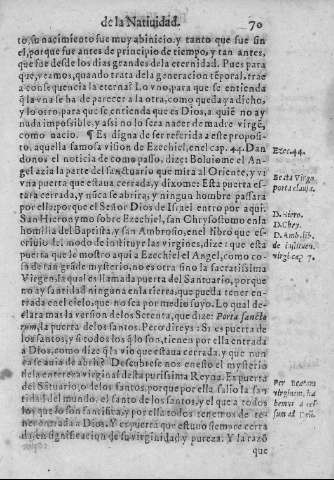 de la Natiuidad. 70
to, su nacimiento fue muy abinicio, y tanto que fue sin
el, porque fue antes de principio de tiempo, y tan antes,
que fue desde los dias grandes de la eternidad. Pues para
que, veamos, quando trata dela generaciõ tẽporal, trae
a consequencia la eterna? Lo vno, para que se entienda
q̃ la vna se ha de parecer a la otra, como queda ya dicho,
y lo otro, para que se entienda que es Dios, a quiẽ no ay
nada impossible, y assi no lo sera nacer de madre virgẽ,
como nacio. ¶ Es digna de ser referida a este proposi-
to, aquella famosa vision de Ezechiel, en el cap. 44. Dan
donos el noticia de como passo, dize: Boluiome el An
gel azia la parte del sanctuario que mira al Oriente, y vi
vna puerta que estaua cerrada, y dixome: Esta puerta es
tara cerrada, y nũca se abrira, y ningun hombre passara
por ella: porque el Señor Dios de Israel entro por aqui.
San Hieronymo sobre Ezechiel, san Chrysostomo en la
homilia del Baptista, y san Ambrosio, en el libro que es-
criuio del modo de instituyr las virgines, dize: que esta
puerta que le mostro aqui a Ezechiel el Angel, como co-
sa de tan grãde mysterio, no es otra sino la sacratissima
Virgen: la qual es llamada puerta del Santuario, porque
no ay santidad ninguna en la tierra, que pueda tener en
trada en el cielo, que no sea por medio suyo. Lo qual de-
clara mas la version delos Setenta, que dize: Porta sancto
rum, la puerta de los santos. Pero direys: Si es puerta de
los santos, y si todos los q̃ lo son, tienen por ella entrada
a Dios, como dize q̃ la vio que estaua cerrada, y que nun
ca se auia de abrir? Descubrese nos en esto el mysterio
de la entereza virginal desta purissima Reyna. Es puerta
del Sãtuario, o de los santos, porque por ella salio la san
tidad del mundo, el santo de los santos, y el que a todos
los que lo son santifica, y por ella todos tenemos de te-
ner entrada a Dios. Y es puerta que estuuo siempre cerra
da, en significacion de su virginidad y pureza. Y la razõ
que
Ezec. 44.
Beata Virgo
porta clausa.
D. Hiero.
D. Chry.
D. Amb. lib.
de instituen.
virgi. cap. 7.
Per Beatam
virginem, ha
bemus